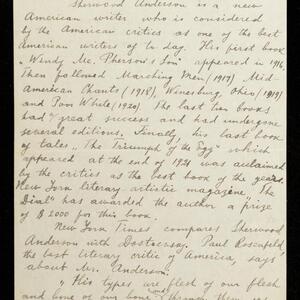 Sherwood Anderson is a new
American writer who is considered
by the American critics as one of the best
American writers of to day. His first book
"Windy Mc. Pherson's Son" appeared in 1916,
Then followed Marching Men (1917) Mid-
American Chants (1918), Winesburg, Ohio (1919)
and Poor White (1920). The last two books
had great success and had undergone
several editions. Finally, his last book
of tales "The Triumph of the Egg" which
appeared at the end of 1921 was acclaimed
by the critics as the best book of the year.
New York literary artistic magazine "The
Dial" has awarded the author a prize
of $ 2000 for this book.
New York Times compares Sherwood
Anderson with Dostoevsky. Paul Rosenfeld,
the best literary critic of America, says
about Mr. Anderson:
"His types are flesh of our flesh
and bone of our bone